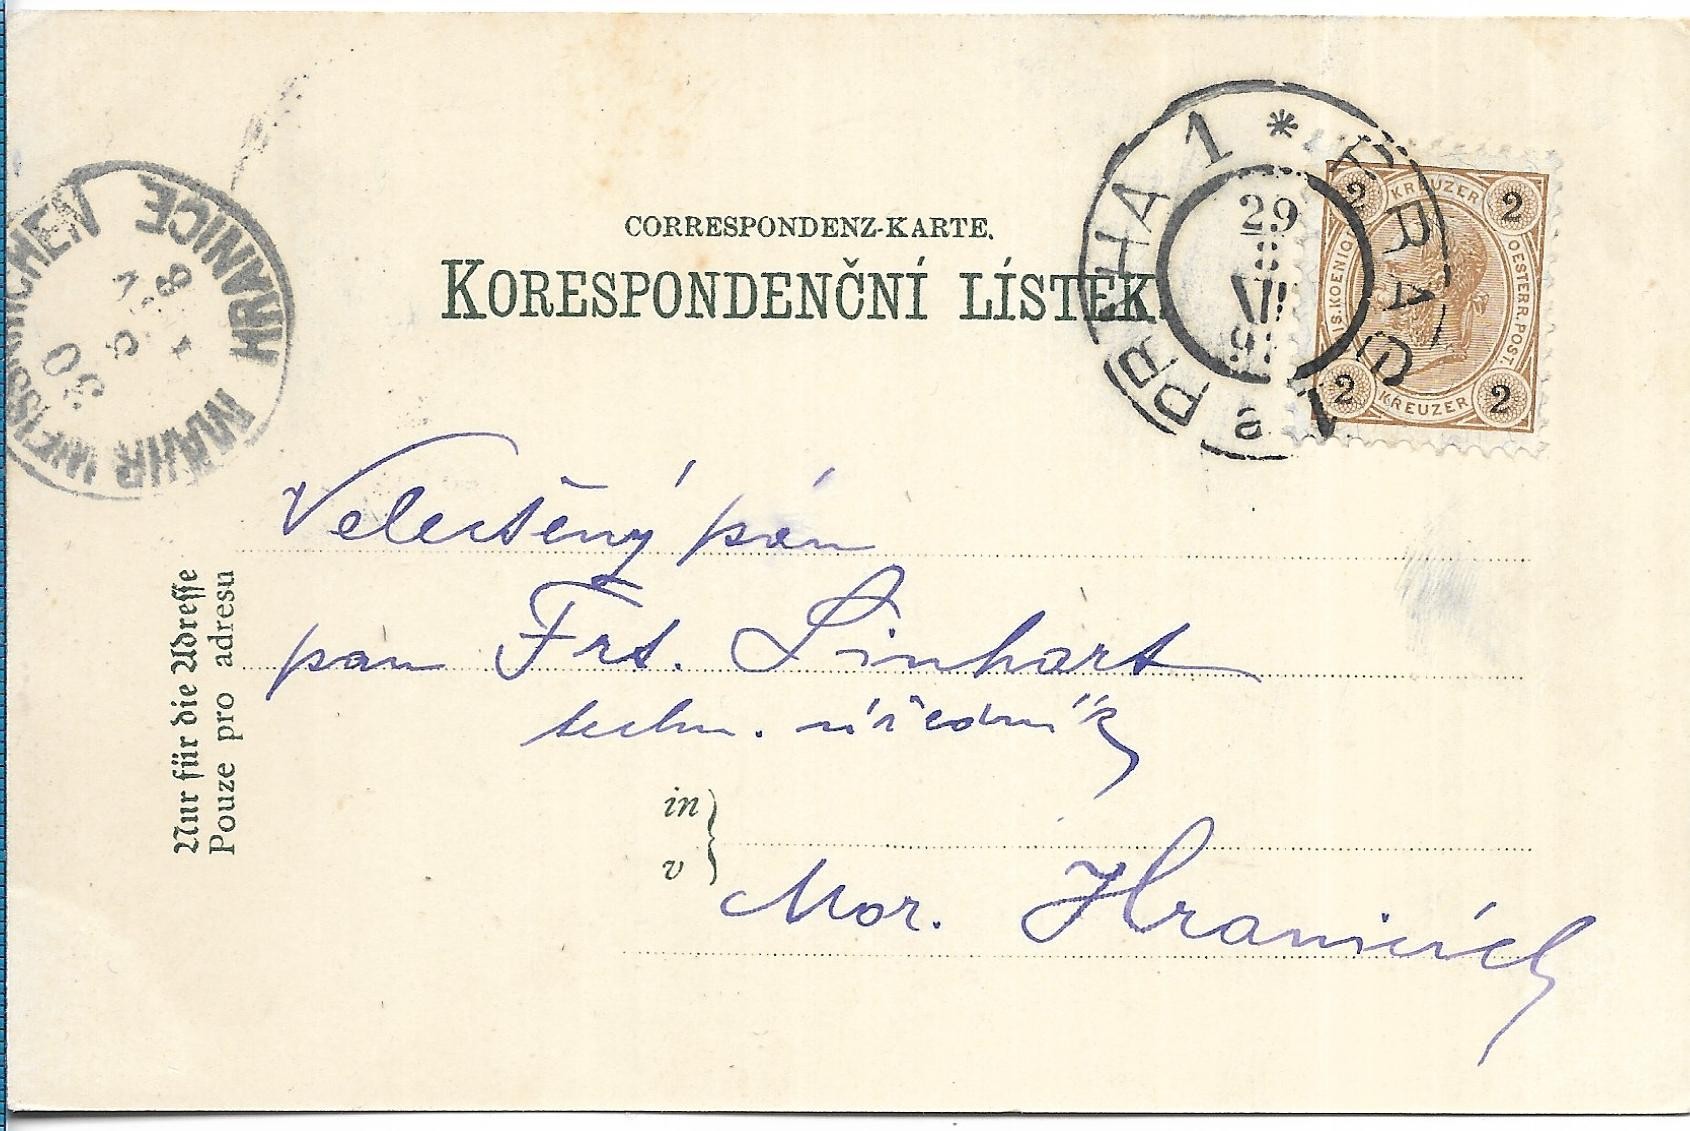 CORRESPONDENZ-KARTE.
KORESPONDENČNÍ LÍSTEK.
PRAHA 1 * PRAG 1
29
8
VII
97
a
2 KREUZER 2
KAIS. KOENIGL. OESTERR. POST.
2 KREUZER 2
MÄHR. WEISSKIRCHEN
HRANICE
30
Velectěný pán
pan Frt. Linhart
techn. úředník
in
v
Mor. Hranicích
Nur für die Adresse
Pouze pro adresu